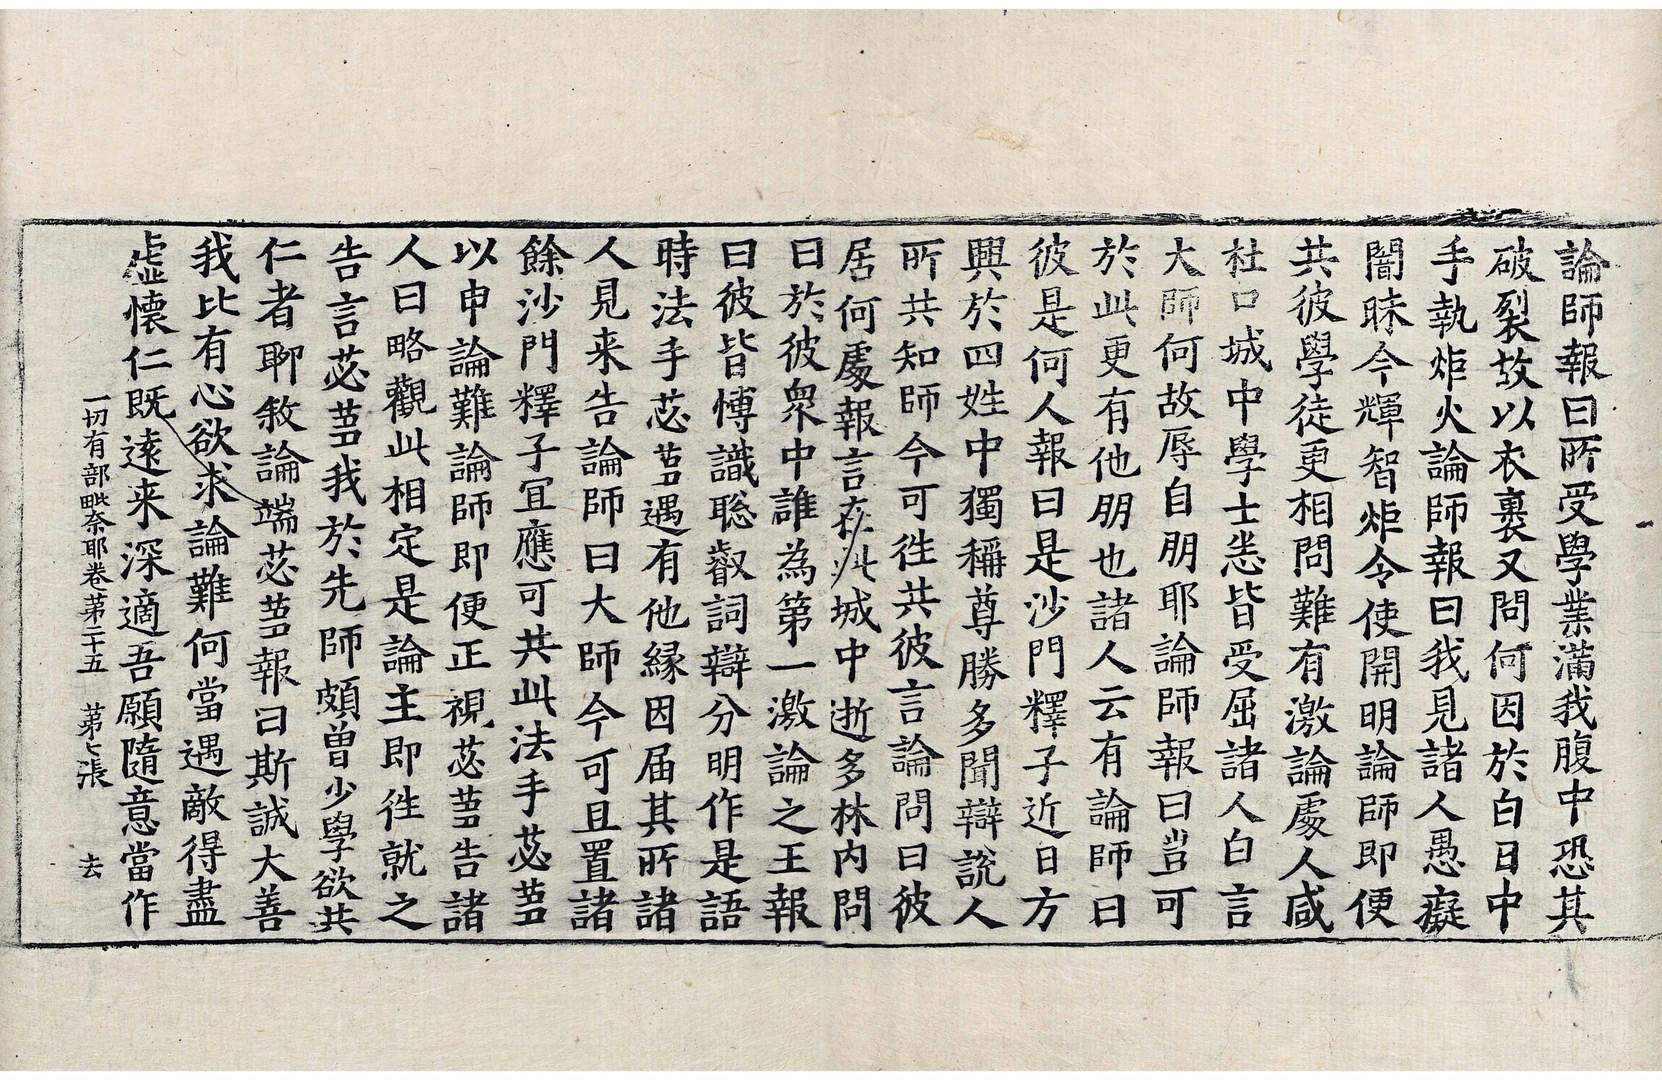 論師報曰所受學業滿我腹中恐其
破裂故以衣裹又問何因於白日中
手執炬火論師報曰我見諸人愚癡
闇昧今輝智炬令使開明論師即便
共彼學徒更相問難有激論處人咸
杜口城中學士悉皆受屈諸人白言
大師何故辱自朋耶論師報曰豈可
於此更有他朋也諸人云有論師曰
彼是何人報曰是沙門釋子近日方
興於四姓中獨稱尊勝多聞辯說人
所共知師今可往共彼言論問曰彼
居何處報言在此城中逝多林內問
曰於彼衆中誰為第一激論之王報
曰彼皆博識聡叡詞辯分明作是語
時法手苾芻遇有他縁因届其所諸
人見来告論師曰大師今可且置諸
餘沙門釋子冝應可共此法手苾芻
以申論難論師即便正視苾芻告諸
人曰略觀此相定是論主即徃就之
告言苾芻我於先師頗曽少學欲共
仁者聊敘論端苾芻報曰斯誠大善
我比有心欲求論難何當遇敵得盡
虛懷仁既遠来深適吾願隨意當作
一切有部毗奈耶卷第二十五　第七張　去